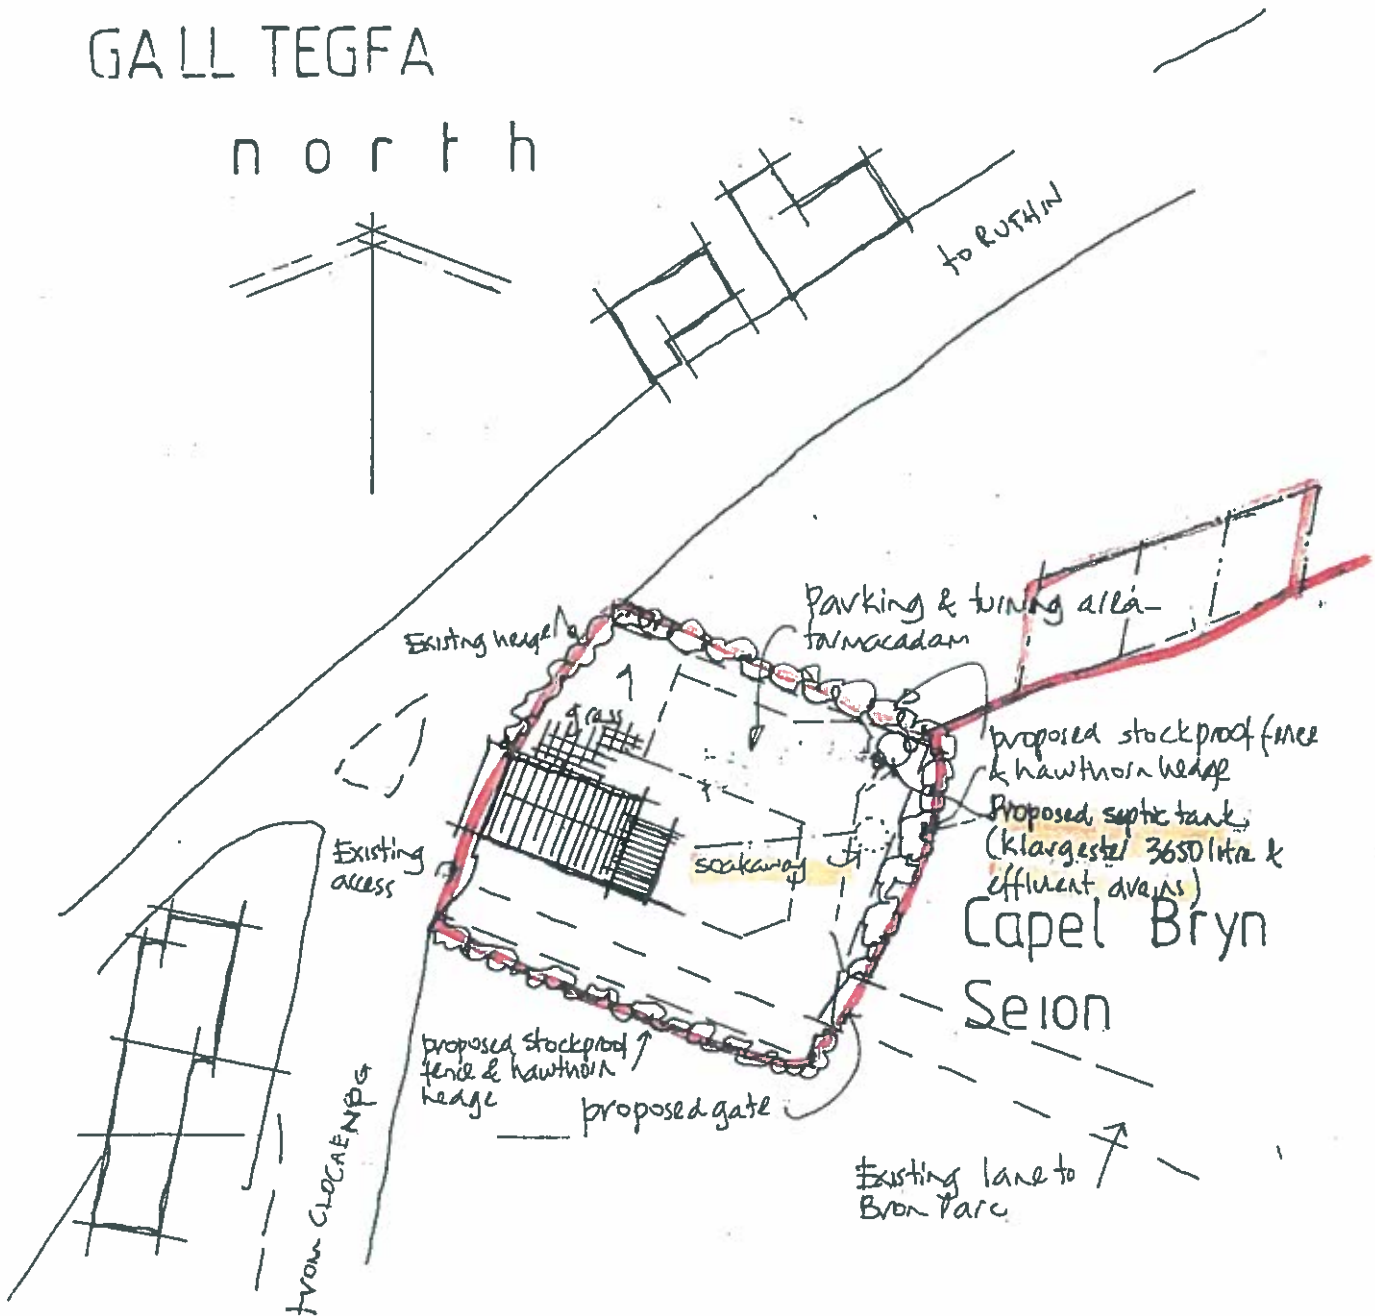 GALL TEGFA
north
to RUTHIN
Parking & turning area-
tarmacadam
Existing hedge
grass
proposed stockproof fence
& hawthorn hedge
Proposed septic tank
(klargester 3650 litre &
effluent drains)
Existing
access
soakaway
Capel Bryn
Seion
proposed stockproof
fence & hawthorn
hedge
proposed gate
Existing lane to
Bron Parc
from CLOCAENOG